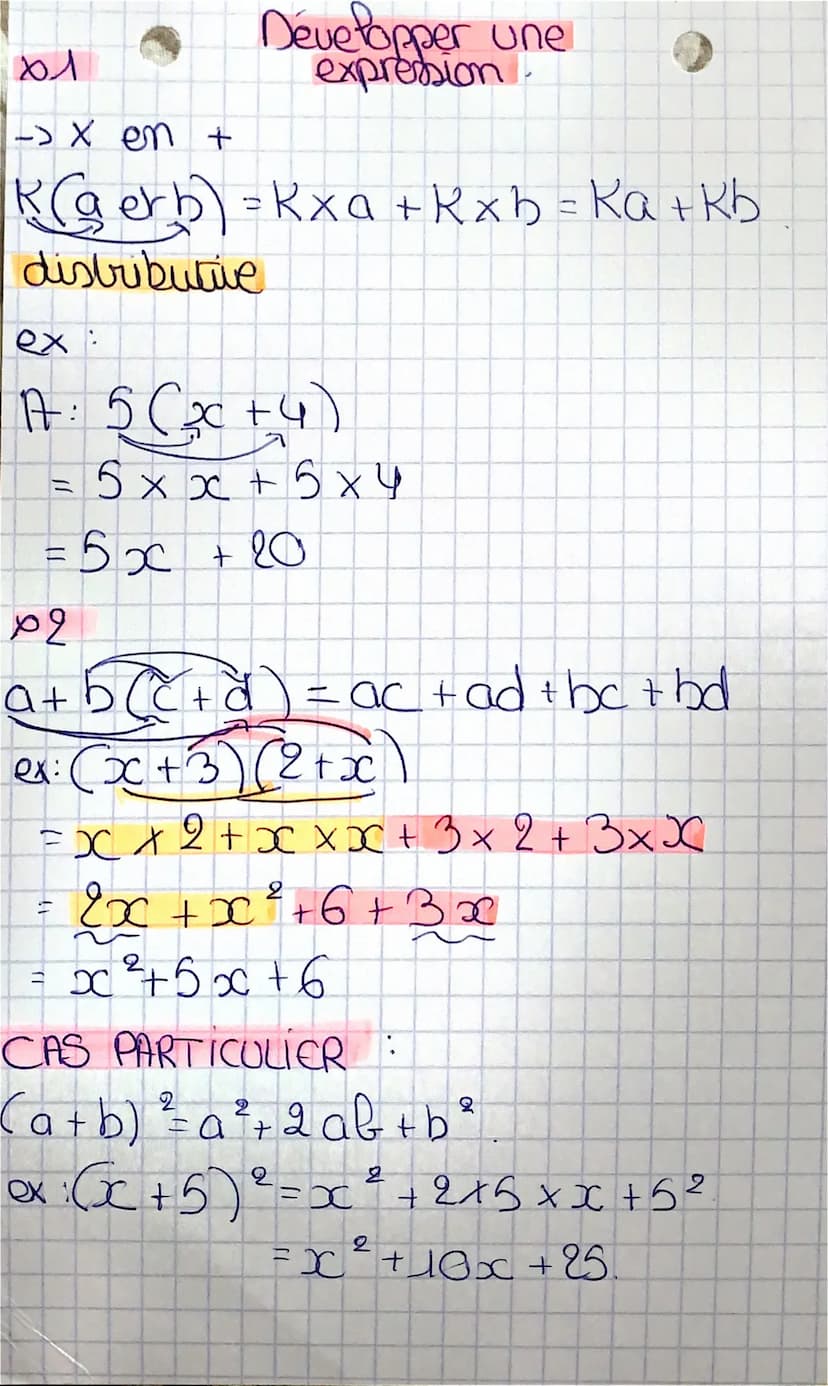 Développer une
expression.
p1
-> x en +
K(a et b) = K x a + K x b = Ka + Kb
distributive
ex :
A: 5(x + 4)
= 5 x x + 5 x 4
= 5x + 20
p2
a + b(c + d) = ac + ad + bc + bd
ex: (x + 3)(2 + x)
= x x 2 + x x x + 3 x 2 + 3 x x
= 2x + x² + 6 + 3x
= x² + 5x + 6
CAS PARTICULIER :
(a + b)² = a² + 2ab + b².
ex : (x + 5)² = x² + 2 x 5 x x + 5²
= x² + 10x + 25.